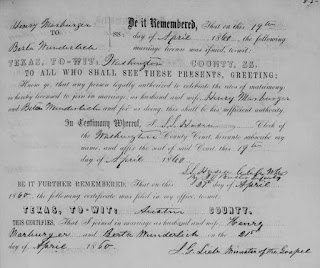 Henry Marburger
TO
Berta Munderlich
SS:
Be it Remembered, That on this 19th
day of April 1860, the following
marriage license was issued, to wit:
TEXAS, TO-WIT: Washington COUNTY, SS.
TO ALL WHO SHALL SEE THESE PRESENTS, GREETING:
Know ye, that any person legally authorized to celebrate the rites of matrimony
is hereby licensed to join in marriage, as husband and wife, Henry Marburger
and Berta Munderlich and for so doing, this shall be his sufficient authority.
In Testimony Whereof, I, Clerk of
the Washington County Court, hereunto subscribe my
name, and affix the seal of said Court this 19th
day of April 1860
BE IT FURTHER REMEMBERED, That on this day of April
1860, the following certificate was filed in my office, to wit:
TEXAS, TO-WIT: Austin COUNTY.
THIS CERTIFIES, That I joined in marriage as husband and wife, Henry
Marburger and Berta Munderlich on the 21st
day of April 1860.
J. G. Lieb Minister of the Gospel